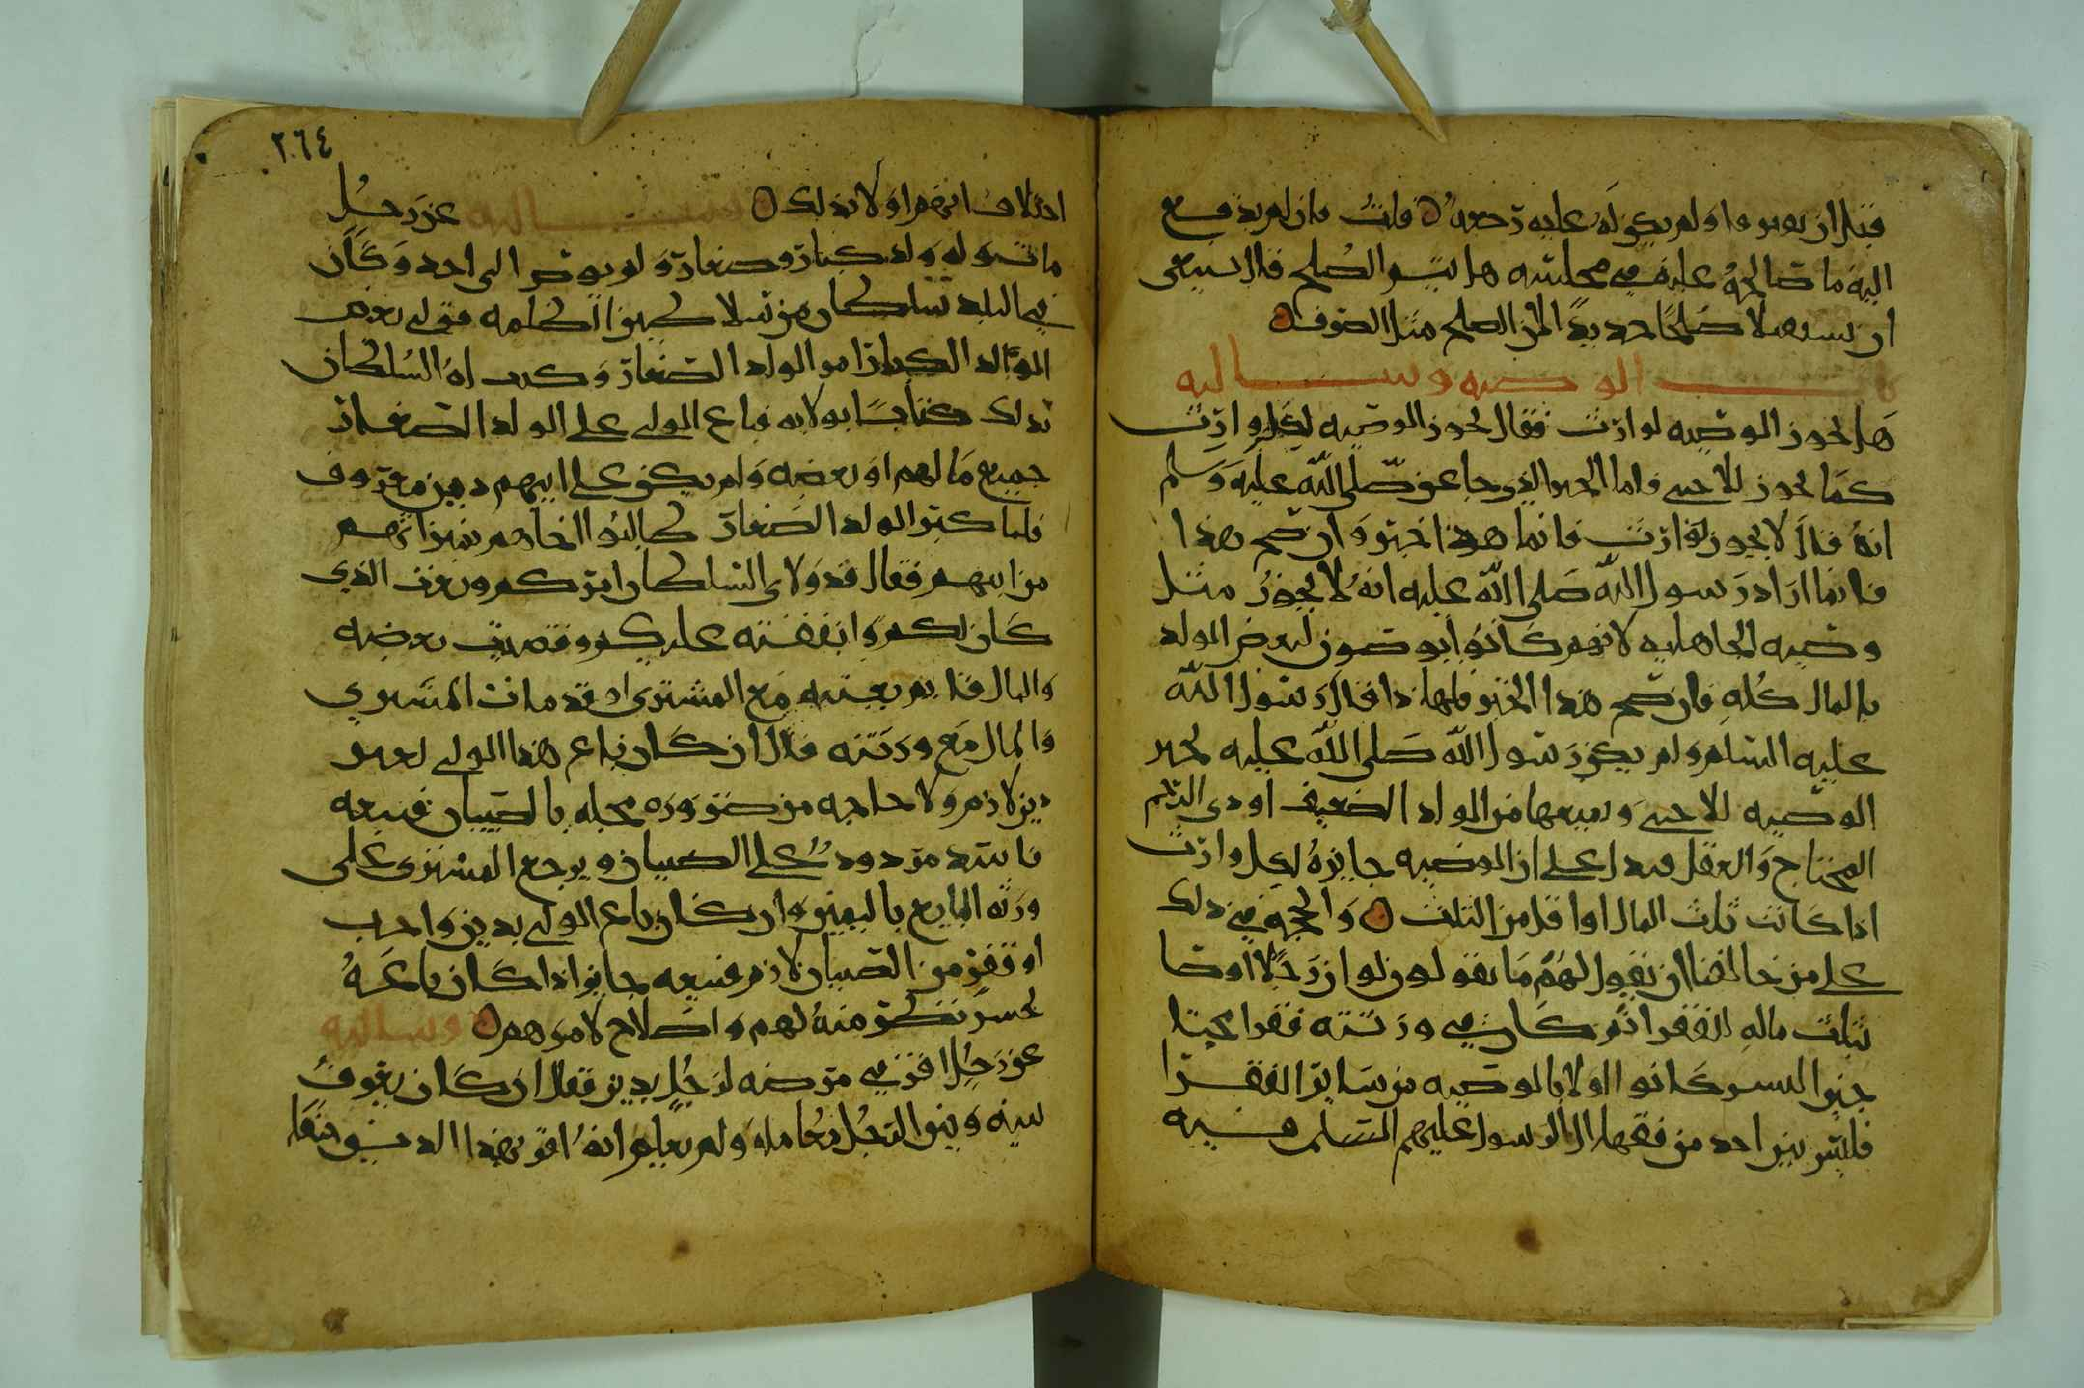 قبل ان يعرفوا ولم يكن له عليه رجعه قلت فان لم يدفع
اليه ما صالحه عليه في مجلسه هل يتم الصلح قال ينبغي
ان يستعملا صلحا جديدا لان الصلح مثل الصرف
باب الوصيه وسالته
هل تجوز الوصيه لوارث فقال تجوز الوصيه لكل وارث
كما تجوز للاجنبي فاما الخبر الذي جا عنه صلى الله عليه وسلم
انه قال لا يجوز لوارث فانما هو ذا خبر وان صح هذا
فانما اراد رسول الله صلى الله عليه انه لا يجوز مثل
وصيه الجاهليه لانهم كانوا يوصون لبعض الولد
بالمال كله فان صح هذا الخبر فلهاذا قال رسول الله
عليه السلم ولم يكن رسول الله صلى الله عليه يجيز
الوصيه للاجنبي ويمنعها من الولد الضعيف او ذي الرحم
المحتاج والعقل يدل على ان الوصيه جايزه لكل وارث
اذا كانت ثلث المال او اقل من الثلث والحجه في ذلك
على من خالفنا ان نقول لهم ما تقولون لو ان رجلا اوصا
بثلث ماله للفقرا ثم كان في ورثته فقرا
اليس كانوا اولا بالوصيه من ساير الفقرا
فليس بين احد من فقها ال الرسول عليهم السلم فيه
٢٦٤
اختلاف انهم اولا بذلك وسالته عن رجل
مات وله ولد كبار وصغار ولم يوص الى احد وكان
في البلد سلطان من سلاطين الظلمه فولى بعض
الولد الكبار امر الولد الصغار وكتب له السلطان
بذلك كتابا بولايه فباع الولي على الولد الصغار
جميع مالهم او بعضه ولم يكن على ابيهم دين معروف
فلما كبر الولد الصغار طالبوا اخاهم بميراثهم
من ابيهم فقال قد ولاني السلطان امركم وبعت الذي
كان لكم وانفقته عليكم وقضيت بعضه
والمال قايم بعينه مع المشتري او قد مات المشتري
والمال مع ورثته قال ان كان باع هذا الولي لغير
دين لازم ولا حاجه من ضروره بالصبيان فبيعه
فاسد مردود على الصبيان ويرجع المشتري على
ورثه البايع بالثمن وان كان باع الولي بدين واجب
او فقر من الصبيان لازم فبيعه جايز اذا كان باعه
بحسن نظر منه لهم واصلاح لامرهم وسالته
عن رجل اقر في مرضه لرجل بدين فقال ان كان يعرف
بينه وبين الرجل معامله ولم يعلم انه اقر بهذا الدين